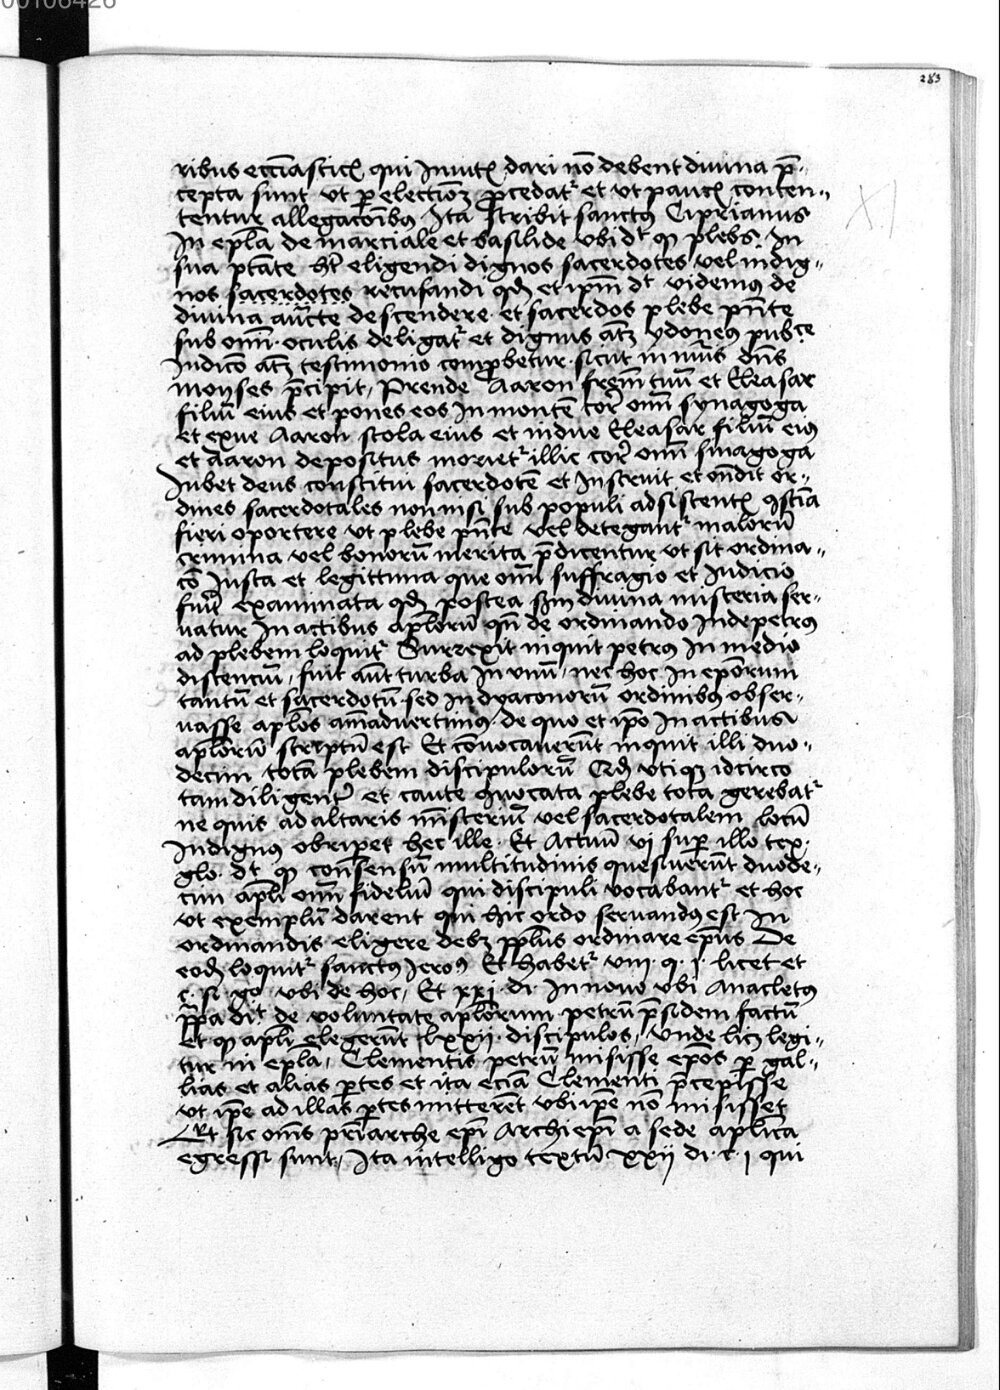 00106426
283
XI
ribus ecciasticꝭ qui Inuitꝭ dari nō debent diuina p̄-
cepta sunt vt ꝑ electiōꝫ ꝓcedatᷣ et vt paucꝭ conten-
tentur allegacōībꝯ Ita stribit sanctꝯ Ciprianus
In epl̄a de marciale et basilide vbi dt̄ ꝙ plebs In
sua ptāte ht̄ eligendi dignos sacerdotes vel indig-
nos sacerdotes recusandi qđ et ip̄m dt̄ videmꝯ de
diuina aūcte descendere et sacerdos plebe pn̄te
sub om̄ oculis deligatᷣ et dignus atꝫ ydoneꝯ pub^ce
Iudicō atꝫ testimonio comꝓbetur sicut in nūis dn̄s
moyses p̄cipit / Prende Aaron frem̄ tuū et Eleasar
filiū eius et pones eos In montē cor̄ om̄i synagoga
et exue Aaron stola eius et indue Eleasar filiū eiꝯ
et Aaron depositus morietᷣ illic cor̄ om̄i sinagoga
Iubet deus constitui sacerdotē et Instruit et on̄dit or-
dines sacerdotales non nisi sub populi adsistentꝭ ꝯstīa
fieri oportere vt plebe pn̄te vel detegantᷣ malorū
crimina vel bonorū merita p̄dicentur vt sit ordina-
cō Iusta et legittima que om̄i suffragio et Iudicio
fuit̄ examinata qđ postea scd̄m diuina misteria ser-
uatur In actibus apl̄orū qn̄ de ordinando Inde petrꝯ
ad plebem loquitᷣ Surrexit inquit petrus In medio
discenciū / fuit aūt turba In vnū / nec hoc In epōrum
tantū et sacerdotū sed In dyaconorū ordinibꝯ obser-
uasse apl̄os am̄aduertimꝯ de quo et ip̄o In actibus
apl̄orū scriptū est Et cōuocauerūt inquit illi duo-
decim totā plebem discipulorū Qđ vtiqꝫ idcirco
tam diligentᷣ et caute ꝯuocata plebe tota gerebatᷣ
ne quis ad altaris mīsteriū vel sacerdotalem locū
Indignꝯ obripet hec ille Et Actuū vj suꝑ illo tex.
glo. dt̄ ꝙ consensū multitudinis quesiuerūt duode-
cim apl̄i om̄i fideliū qui discipuli vocabantᷣ et hoc
vt exemplū darent qui hic ordo seruandꝯ est In
ordinandis eligere debꝫ ppl̄us ordinare ep̄us De
eodꝫ loquitᷣ sanctꝯ Jeroꝯ Et habetᷣ viij. q. j. licet et
c. si g° vbi de hoc / Et xxj. di. In nouo vbi Anacletꝯ
pp̄a dit̄ de voluntate apl̄orum petrū p̄sidem factū
Et ꝙ apl̄i elegerūt lxxij. discipulos / vnde licꝫ legi-
tur in epl̄a / Clementis petrū misisse epōs ꝑ gal-
lias et alias ꝑtes et ita eciā Clementi p̄cepisse
vt ip̄e ad illas ꝑtes mitteret vbi ip̄e nō misisset
Et sic om̄s p̄riarche ep̄i Archiep̄i a sede apl̄ica
egressi sunt / Ita intelligo textū xxij di. c. j qui